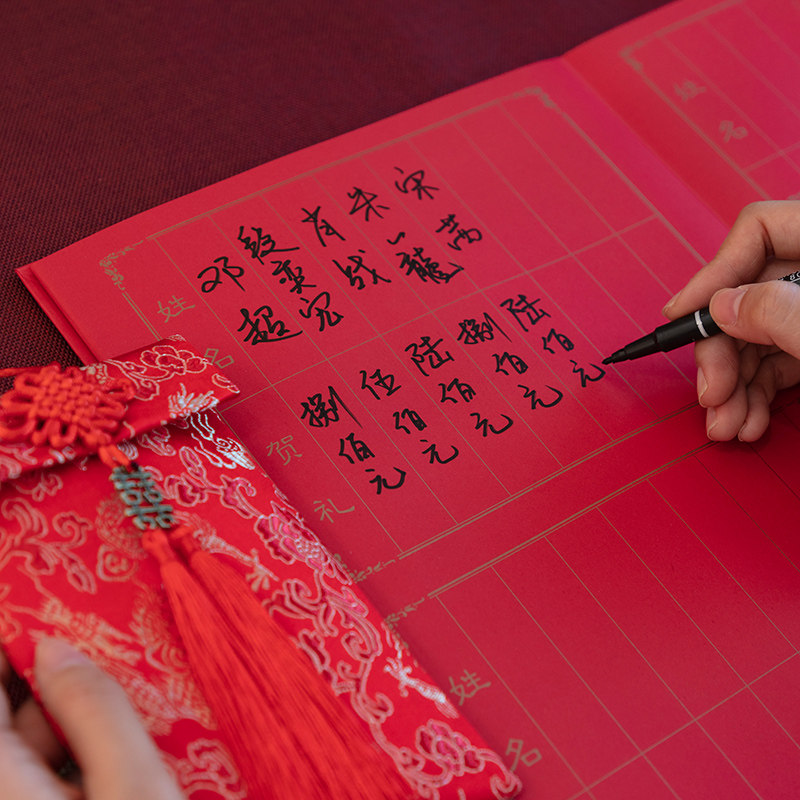 姓名
邓超
段奕宏
肖战
朱一龍
宋茜
贺礼
捌佰元
伍佰元
陆佰元
捌佰元
陆佰元
姓名
姓名